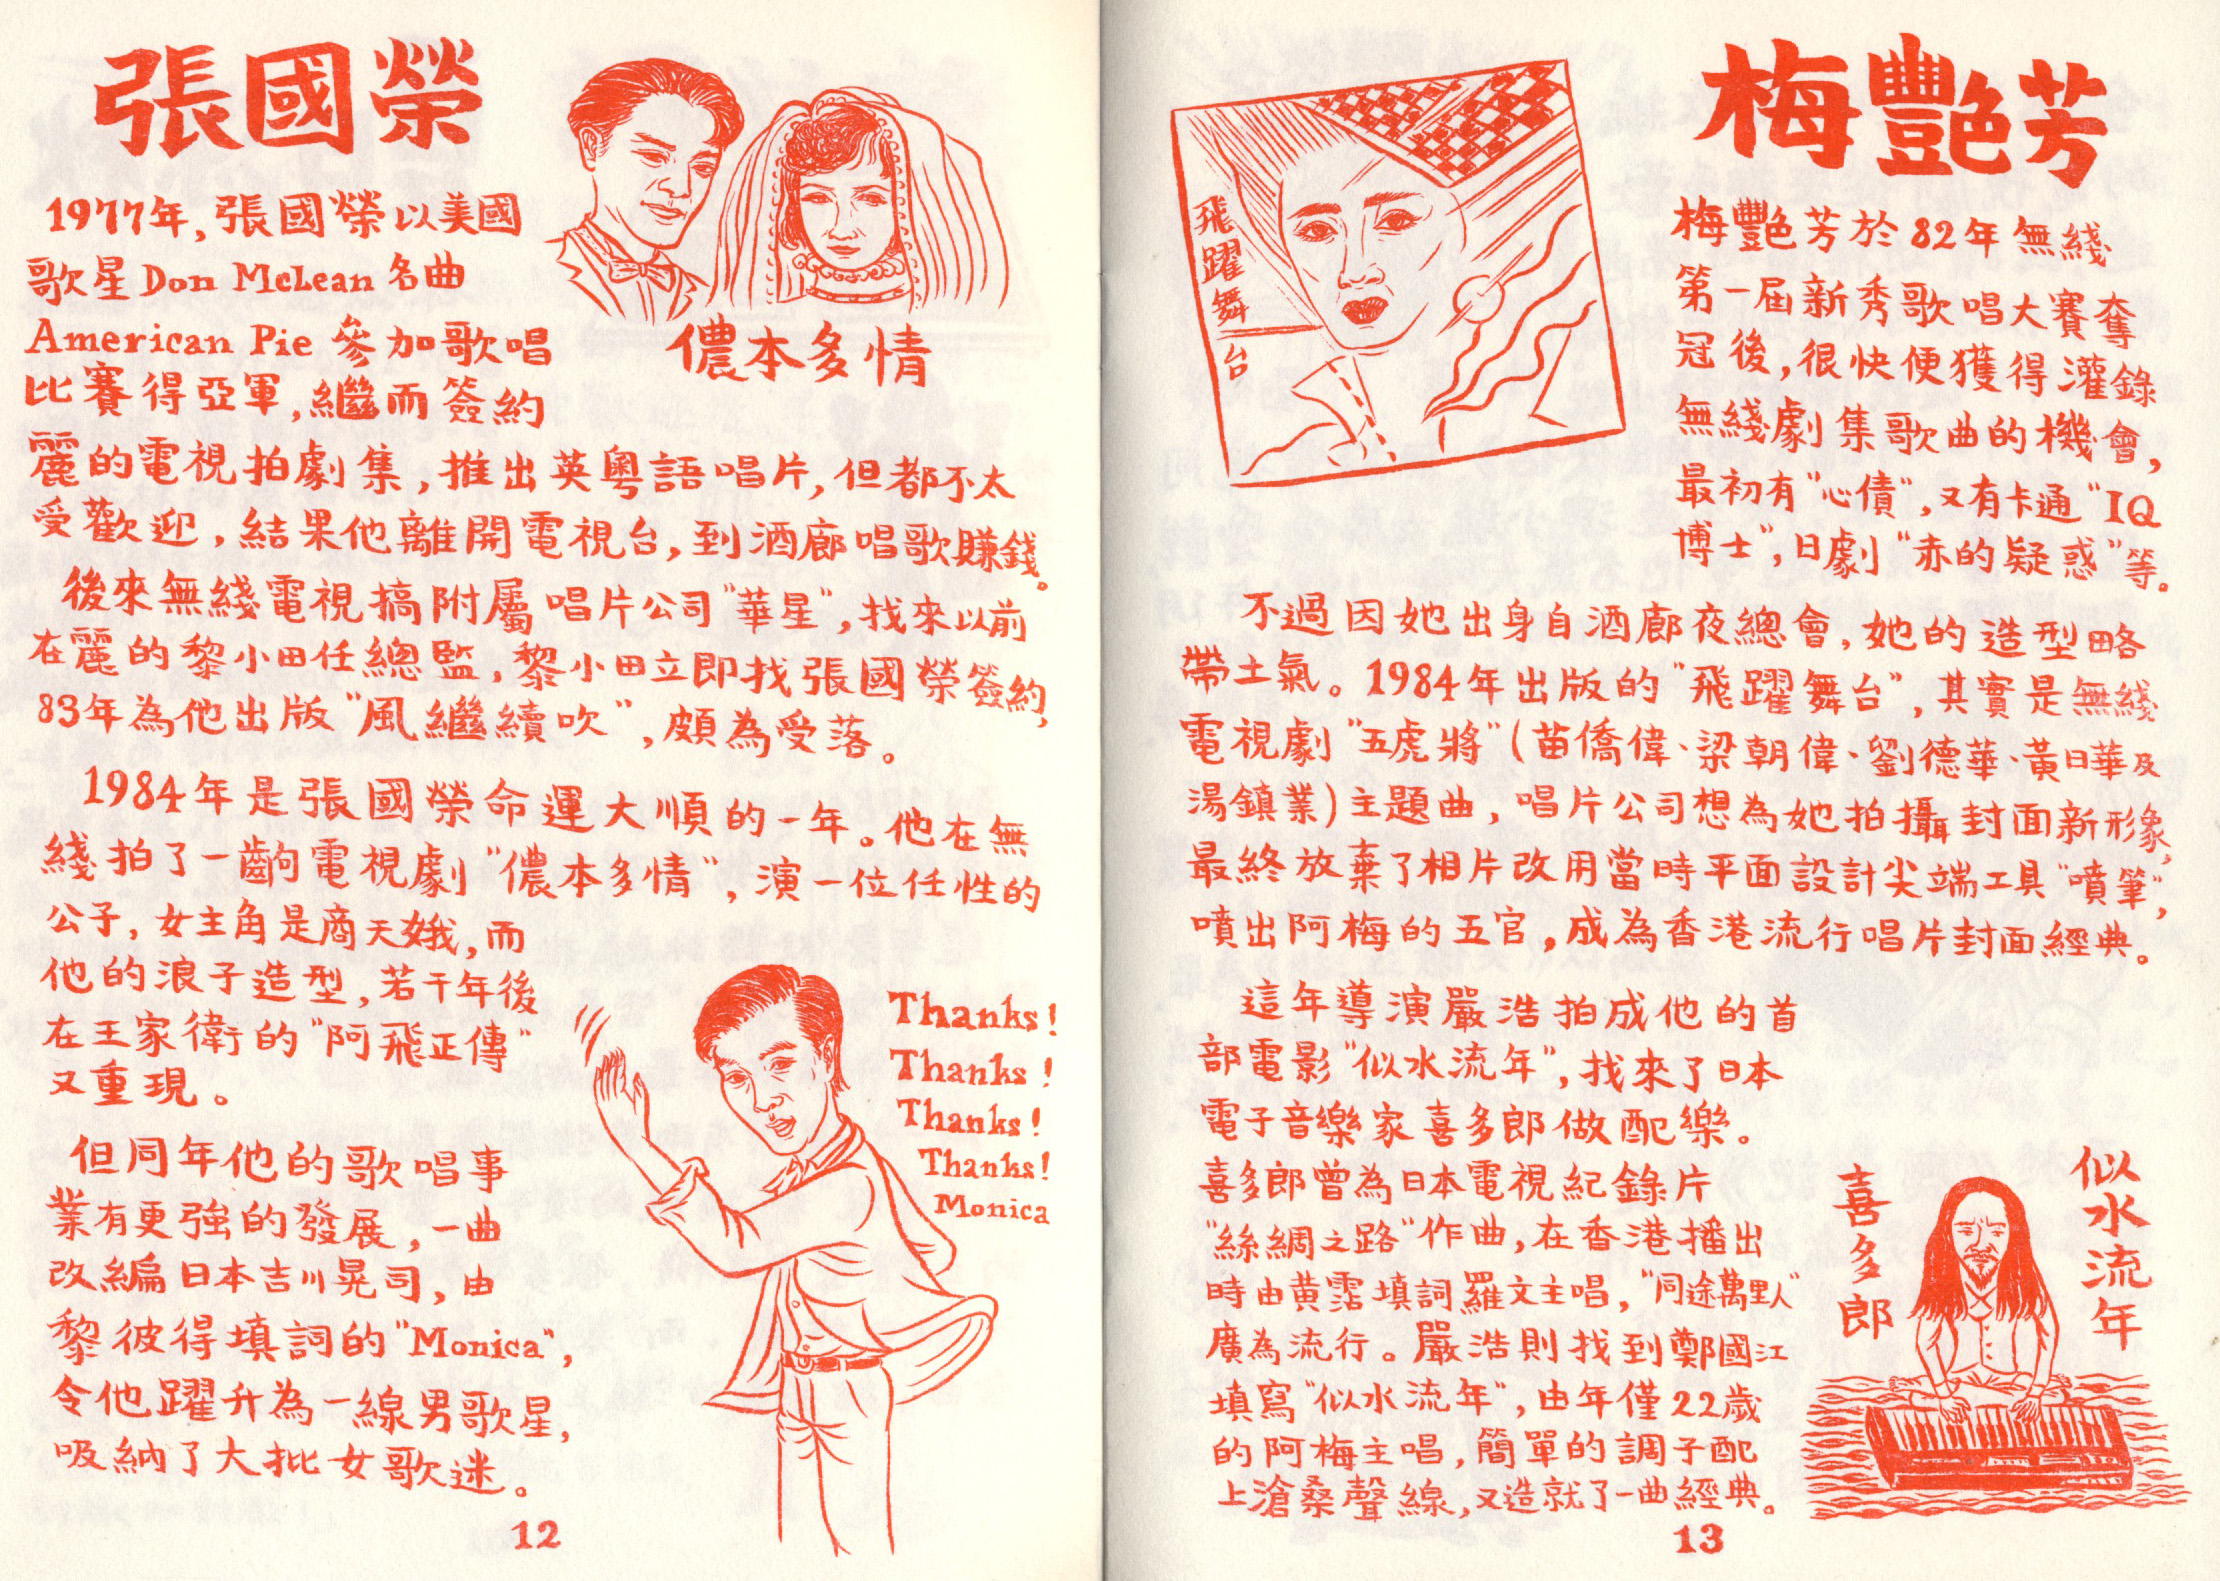 張國榮
1977年,張國榮以美國
歌星Don McLean名曲
American Pie參加歌唱
比賽得亞軍,繼而簽約
麗的電視拍劇集,推出英粵語唱片,但都不太
受歡迎,結果他離開電視台,到酒廊唱歌賺錢。
後來無綫電視搞附屬唱片公司"華星",找來以前
在麗的黎小田任總監,黎小田立即找張國榮簽約,
83年為他出版"風繼續吹",頗為受落。
1984年是張國榮命運大順的一年。他在無
綫拍了一齣電視劇"儂本多情",演一位任性的
公子,女主角是商天娥,而
他的浪子造型,若干年後
在王家衛的"阿飛正傳"
又重現。
但同年他的歌唱事
業有更強的發展,一曲
改編日本吉川晃司,由
黎彼得填詞的"Monica",
令他躍升為一線男歌星,
吸納了大批女歌迷。
儂本多情
Thanks!
Thanks!
Thanks!
Thanks!
Monica
12
梅艷芳
飛躍舞台
梅艷芳於82年無綫
第一屆新秀歌唱大賽奪
冠後,很快便獲得灌錄
無綫劇集歌曲的機會,
最初有"心債",又有卡通"IQ
博士",日劇"赤的疑惑"等。
不過因她出身自酒廊夜總會,她的造型略
帶土氣。1984年出版的"飛躍舞台",其實是無綫
電視劇"五虎將"(苗僑偉、梁朝偉、劉德華、黃日華及
湯鎮業)主題曲,唱片公司想為她拍攝封面新形象,
最終放棄了相片改用當時平面設計尖端工具"噴筆",
噴出阿梅的五官,成為香港流行唱片封面經典。
這年導演嚴浩拍成他的首
部電影"似水流年",找來了日本
電子音樂家喜多郎做配樂。
喜多郎曾為日本電視紀錄片
"絲綢之路"作曲,在香港播出
時由黃霑填詞羅文主唱,"同途萬里人"
廣為流行。嚴浩則找到鄭國江
填寫"似水流年",由年僅22歲
的阿梅主唱,簡單的調子配
上滄桑聲線,又造就了一曲經典。
似水流年
喜多郎
13